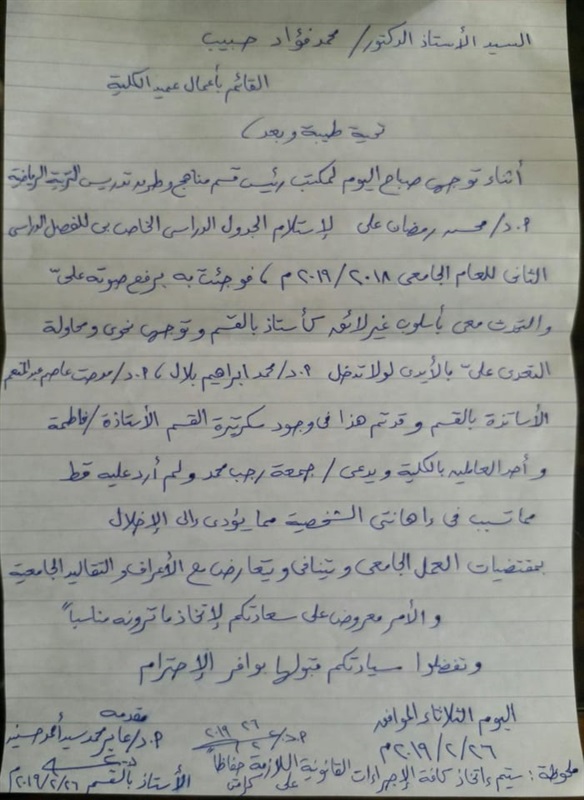 السيد الأستاذ الدكتور/ محمد فؤاد حبيب
القائم بأعمال عميد الكلية
تحية طيبة وبعد،
أثناء توجهى صباح اليوم لمكتب رئيس قسم مناهج وطرق تدريس التربية الرياضية
م.د/ محسن رمضان على لإستلام الجدول الدراسى الخاص بى للفصل الدراسى
الثانى للعام الجامعى ٢٠١٨/٢٠١٩م، فوجئت به يرفع صوته علىّ
والتحدث معى بأسلوب غير لائق كأستاذ بالقسم وتوجهى نحوى ومحاولة
التعدى علىّ بالأيدى لولا تدخل م.د/ محمد ابراهيم بلال، م.د/ مدحت عاصم عبد المنعم
الأساتذة بالقسم وقد تم هذا فى وجود سكرتيرة القسم الأستاذة/ فاطمة
وأحد العاملين بالكلية ويدعى/ جمعة رجب محمد ولم أرد عليه قط
مما تسبب فى إهانتى الشخصية مما يؤدى إلى الإخلال
بمقتضيات العمل الجامعى ويتنافى ويتعارض مع الأعراف والتقاليد الجامعية
والأمر معروض على سعادتكم لإتخاذ ما ترونه مناسباً
وتفضلوا سيادتكم قبولها بوافر الإحترام
اليوم الثلاثاء الموافق
٢٠١٩/٢/٢٦م
مقدمه
م.د/ عايد محمد سيد أحمد حسنين
الأستاذ بالقسم ٢٠١٩/٢/٢٦م
ملحوظة: سيتم إتخاذ كافة الإجراءات القانونية اللازمة حفاظاً على